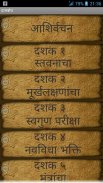 21:26
आशिर्वचन
दशक १
स्तवनाचा
दशक २
मूर्खलक्षणांचा
दशक ३
स्वगुण परीक्षा
दशक ४
नवविधा भक्ति
दशक ५
मंत्रांचा